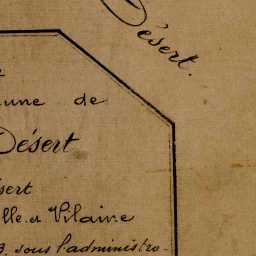 Désert.
une de
Désert
sert
lle.et Vilaine
3. sous l'administro-